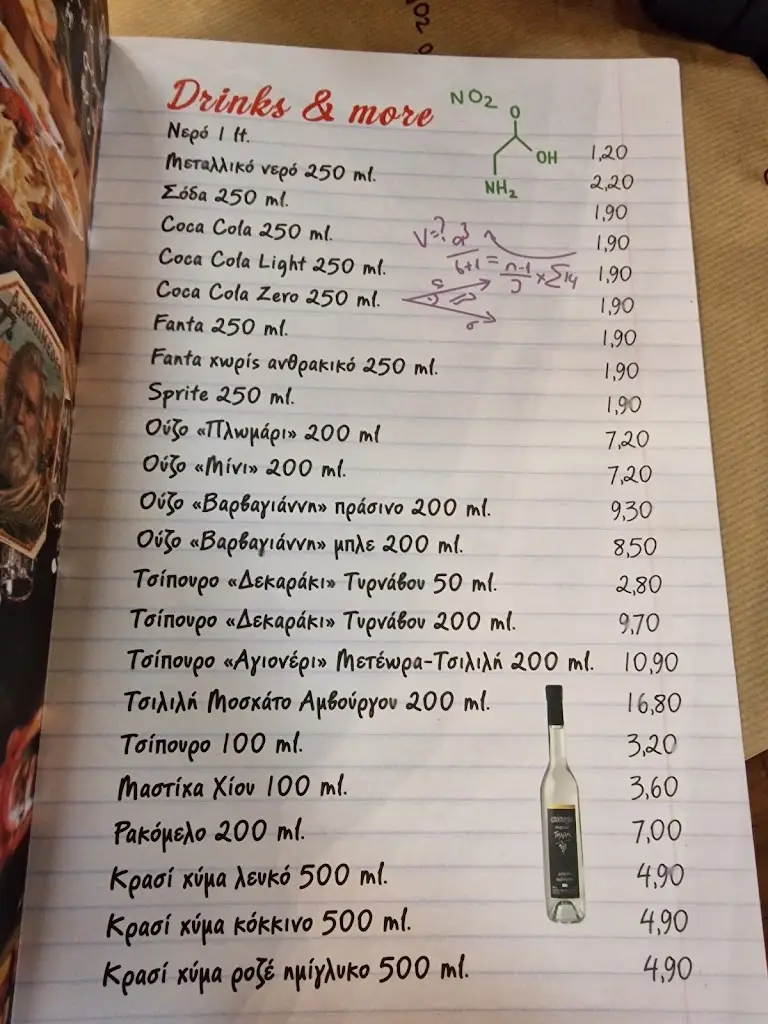 Drinks & more
NO2
O
OH
NH2
Νερό 1 lt. 1,20
Μεταλλικό νερό 250 ml. 2,20
Σόδα 250 ml. 1,90
Coca Cola 250 ml. 1,90
V=?
Coca Cola Light 250 ml. 1,90
Coca Cola Zero 250 ml. 1,90
Fanta 250 ml. 1,90
Fanta χωρίς ανθρακικό 250 ml. 1,90
Sprite 250 ml. 1,90
Ούζο «Πλωμάρι» 200 ml 7,20
Ούζο «Μίνι» 200 ml. 7,20
Ούζο «Βαρβαγιάννη» πράσινο 200 ml. 9,30
Ούζο «Βαρβαγιάννη» μπλε 200 ml. 8,50
Τσίπουρο «Δεκαράκι» Τυρνάβου 50 ml. 2,80
Τσίπουρο «Δεκαράκι» Τυρνάβου 200 ml. 9,70
Τσίπουρο «Αγιονέρι» Μετέωρα-Τσιλιλή 200 ml. 10,90
Τσιλιλή Μοσχάτο Αμβούργου 200 ml. 16,80
Τσίπουρο 100 ml. 3,20
Μαστίχα Χίου 100 ml. 3,60
Ρακόμελο 200 ml. 7,00
Κρασί χύμα λευκό 500 ml. 4,90
Κρασί χύμα κόκκινο 500 ml. 4,90
Κρασί χύμα ροζέ ημίγλυκο 500 ml. 4,90